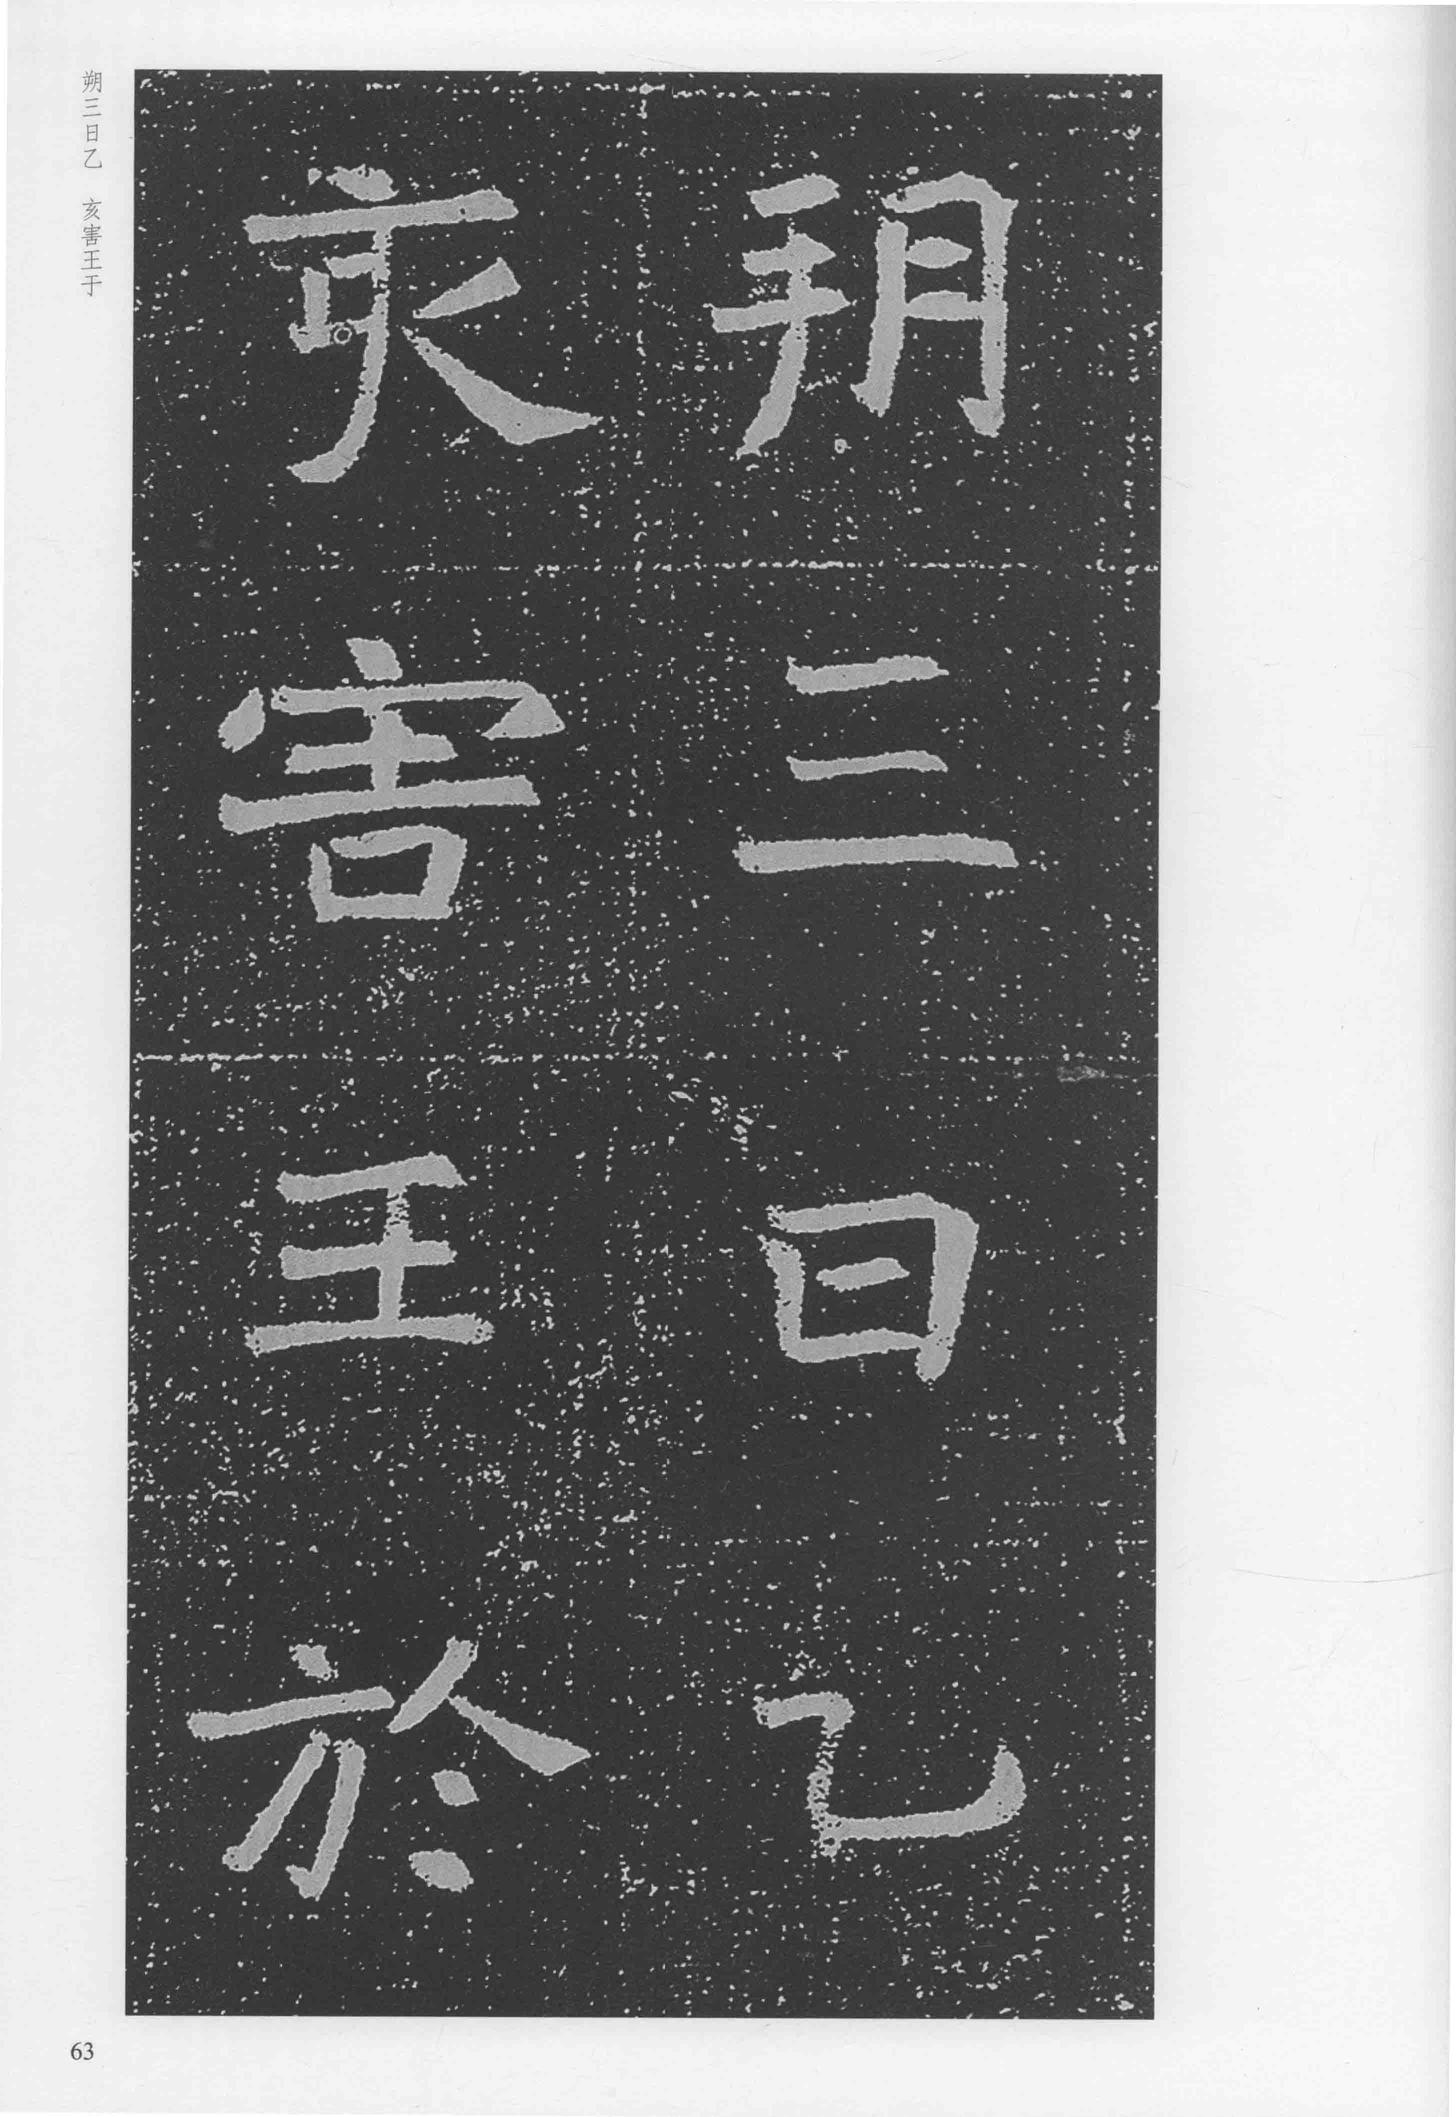 朔三日乙
亥害王於
朔三日乙 亥害王于
63